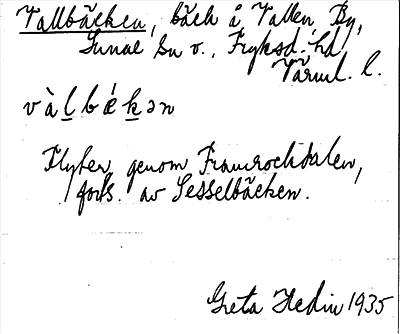 Vallbäcken, bäck å Vallen, By,
Sunne sn v., Fryksd. hd,
Värml. l.
v à l b é k ə n
Flyter genom Framrochdalen,
forts. av Sesselbäcken.
Greta Hedin 1935